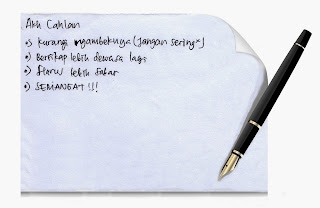 •) kurangi ngambeknya (jangan sering²)
•) Bersikap lebih dewasa lagi
•) Harus lebih sabar
•) SEMANGAT !!!